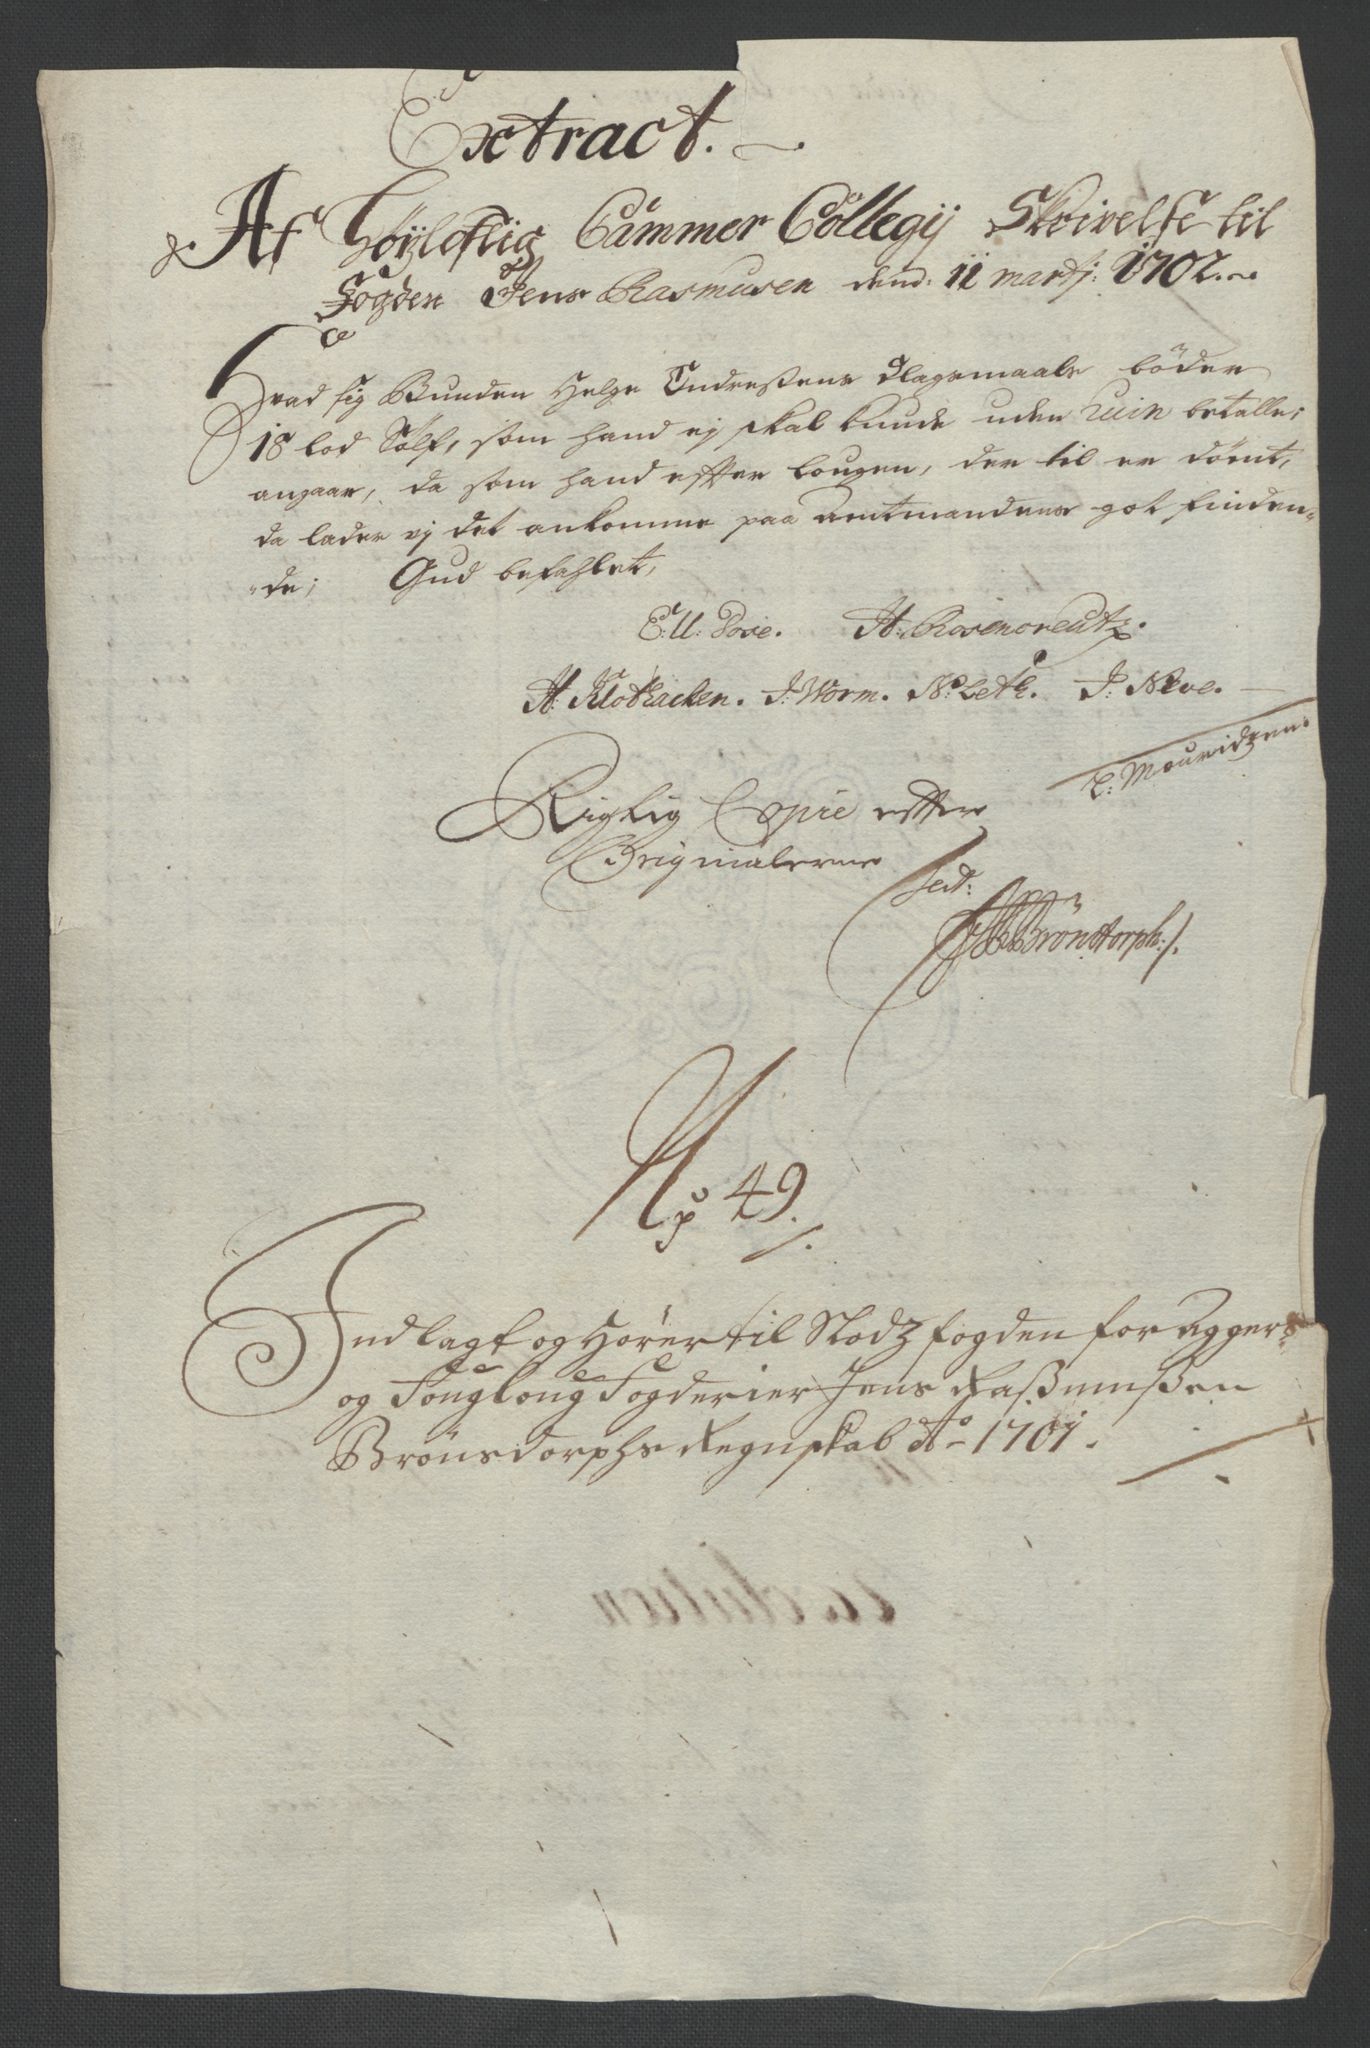 Extract.
Af Höÿloflig Cammer Collegij Skrivelse til
Fogden Jens Rasmusen dend: 11 martj: 1702.
Hvad sig Bunden Helge Endresens Slagsmaals böder
18 lod Sölf, som hand ej skal kunde uden ruin betalle;
angaar, da som hand efter Lougen, der til er dömt,
da lader vj det ankomme paa Amtmandens got finden-
-de; Gud befahlet,
C: U: Pose. A: Rosencreutz.
A: Klothacken. J: Worm. N: Leth. J: Neve.
C: Mouridzen.
Rigtig Copie efter
Originalerne
test:
Bröndtorph:/.
Np 49.
Indlagt og Hörer til Slodz fogden for Agger:
og Fougloug Fogderier Jens Raßmußen
Brönsdorphs Regnskab Ao 1701.